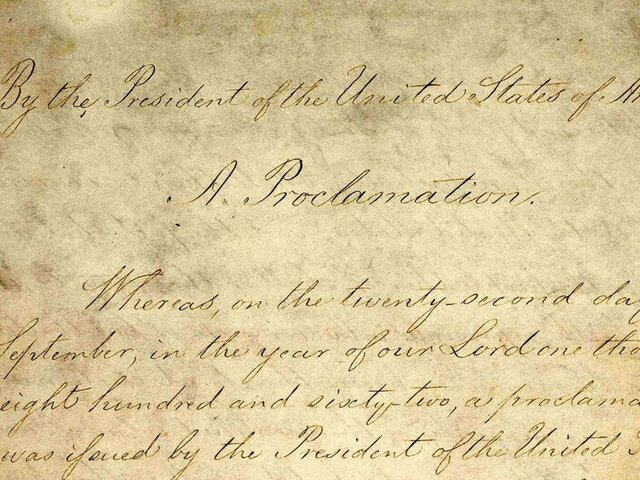 By the President of the United States of A
A Proclamation.
Whereas, on the twenty-second day
September, in the year of our Lord one tho
eight hundred and sixty-two, a proclama
was issued by the President of the United S